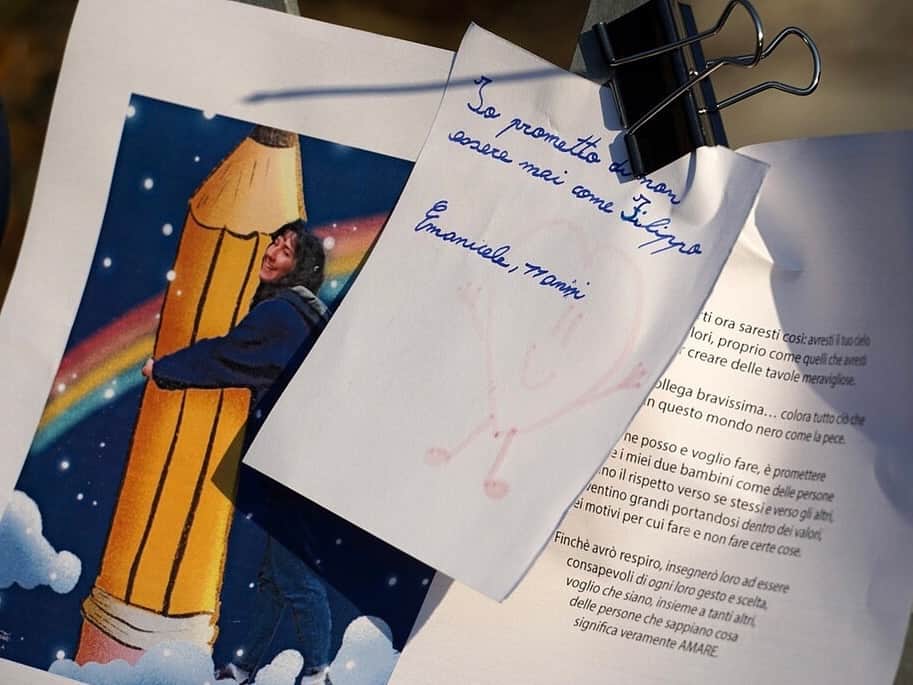 Io prometto di non
essere mai come Filippo
Emanuele, nanni
ti ora saresti così: avresti il tuo cielo
lori, proprio come quelli che avresti
creare delle tavole meravigliose.
ollega bravissima... colora tutto ciò che
n questo mondo nero come la pece.
ne posso e voglio fare, è promettere
e i miei due bambini come delle persone
no il rispetto verso se stessi e verso gli altri,
ventino grandi portandosi dentro dei valori,
ei motivi per cui fare e non fare certe cose.
Finchè avrò respiro, insegnerò loro ad essere
consapevoli di ogni loro gesto e scelta,
voglio che siano, insieme a tanti altri,
delle persone che sappiano cosa
significa veramente AMARE.